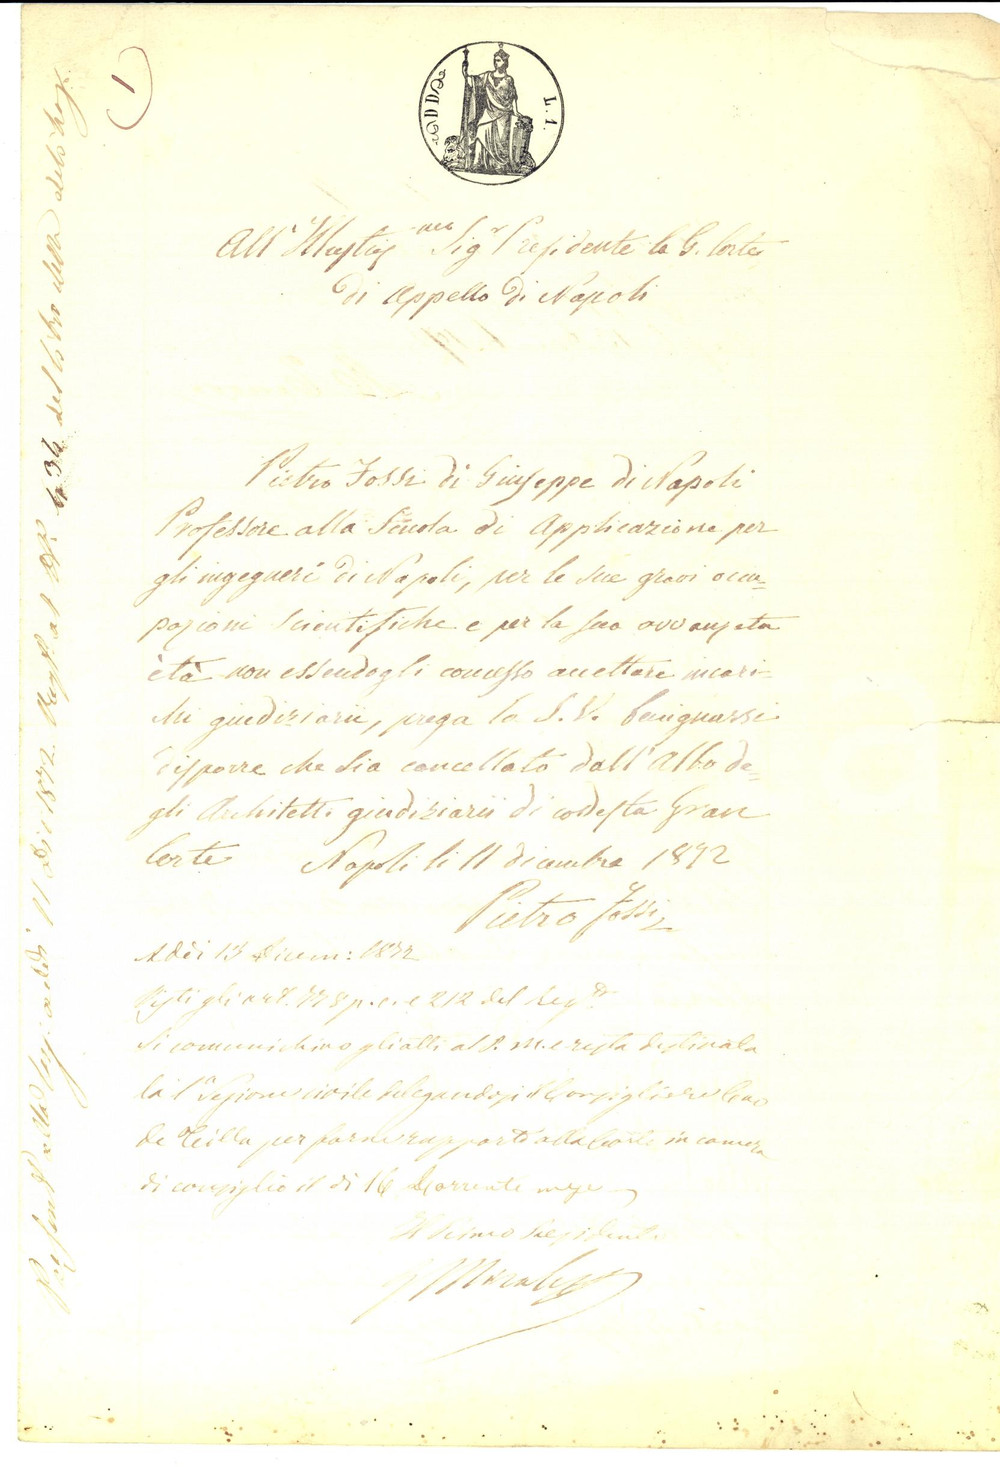 1
L. 1.
All'Illustris.mo Sigr Presidente la G. Corte
di Appello di Napoli
Pietro Tossi di Giuseppe di Napoli
Professore alla Scuola di Applicazione per
gli ingegneri di Napoli, per le sue gravi occu-
pazioni scientifiche e per la sua avvanzata
età non essendogli concesso accettare incari-
chi giudiziarii, prega la S. V. benignarsi
disporre che sia cancellato dall'Albo de-
gli Architetti giudiziarii di codesta Gran
Corte Napoli li 11 dicembre 1872
Pietro Tossi
Addì 13 Dicem: 1872
Visti gli art. 778 p. c. e 212 del reg.to
Si comunichino gli atti al P. M. e resta destinata
la 1a Sezione civile delegandosi il Consigliere
de Cilla per farne rapporto alla Corte in camera
di consiglio il dì 16 corrente mese
Il Primo Presidente
11 Dic 1872
34 del libro della